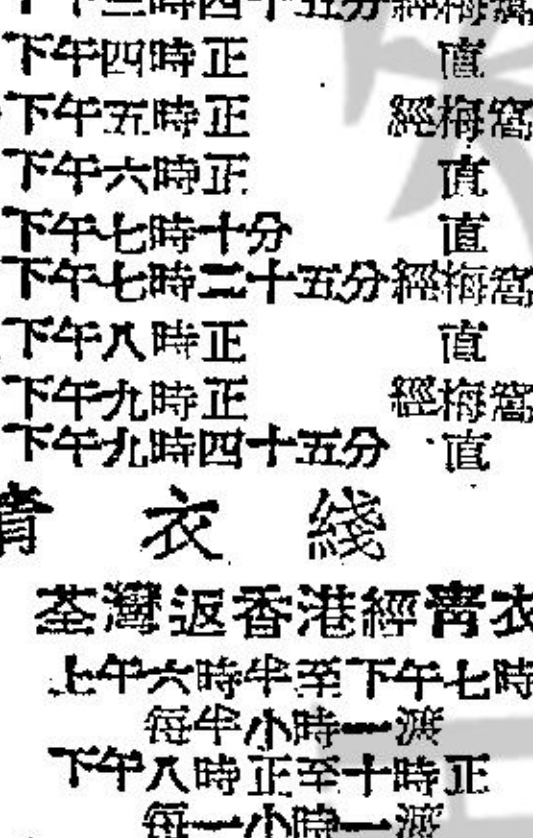 下午三時四十五分經梅窩
下午四時正 直
下午五時正 經梅窩
下午六時正 直
下午七時十分 直
下午七時二十五分經梅窩
下午八時正 直
下午九時正 經梅窩
下午九時四十五分 直
青衣綫
荃灣返香港經青衣
上午六時半至下午七時
每半小時一渡
下午八時正至十時正
每一小時一渡